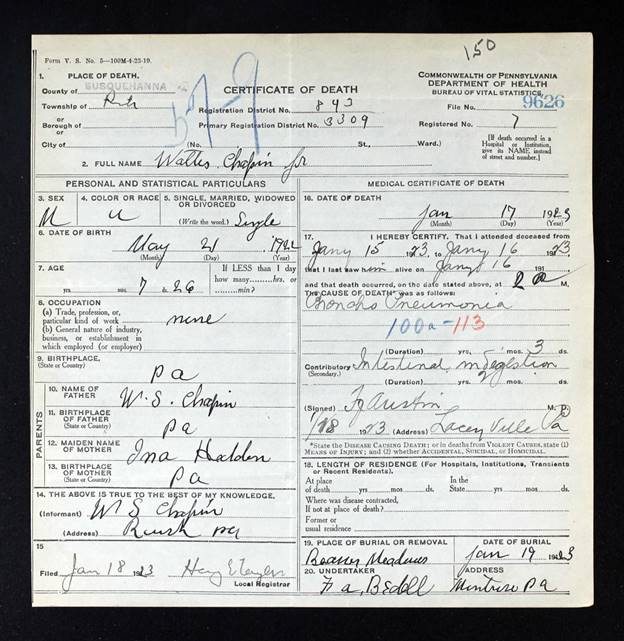 150
Form V. S. No. 5—100M-4-23-19.
1. PLACE OF DEATH.
County of SUSQUEHANNA
Township of
or
Borough of
or
City of
CERTIFICATE OF DEATH
Registration District No. 843
Primary Registration District No. 3309
(No. St., Ward.)
COMMONWEALTH OF PENNSYLVANIA
DEPARTMENT OF HEALTH
BUREAU OF VITAL STATISTICS
File No. 9626
Registered No. 7
[If death occurred in a Hospital or Institution, give its NAME, instead of street and number.]
2. FULL NAME Wattis Chapin Jr
PERSONAL AND STATISTICAL PARTICULARS
3. SEX
M
4. COLOR OR RACE
5. SINGLE, MARRIED, WIDOWED OR DIVORCED
(Write the word.) Single
6. DATE OF BIRTH
May 21 1922
(Month) (Day) (Year)
7. AGE
yrs. 7 mos. 26 ds.
If LESS than 1 day how many hrs. or min.?
8. OCCUPATION
(a) Trade, profession, or particular kind of work none
(b) General nature of industry, business, or establishment in which employed (or employer)
9. BIRTHPLACE
(State or Country)
Pa
PARENTS
10. NAME OF FATHER
W. S. Chapin
11. BIRTHPLACE OF FATHER
(State or Country)
Pa
12. MAIDEN NAME OF MOTHER
Ina Hadden
13. BIRTHPLACE OF MOTHER
(State or Country)
Pa
14. THE ABOVE IS TRUE TO THE BEST OF MY KNOWLEDGE.
(Informant) W S Chapin
(Address) Rush Pa
15
Filed Jan 18 1923
Local Registrar
MEDICAL CERTIFICATE OF DEATH
16. DATE OF DEATH
Jan 17 1923
(Month) (Day) (Year)
17. I HEREBY CERTIFY, That I attended deceased from
Jany 15 1923 to Jany 16 1923
that I last saw him alive on Jany 16 191
and that death occurred, on the date stated above, at 2 a M.
The CAUSE OF DEATH* was as follows:
Broncho Pneumonia
100a-113
(Duration) yrs. mos. 3 ds.
Contributory Intestinal indigestion
(Secondary.)
(Duration) yrs. mos. ds.
(Signed) Austin M. D.
1/18 1923 (Address) Laceyville Pa
*State the DISEASE CAUSING DEATH; or in deaths from VIOLENT CAUSES, state (1) MEANS OF INJURY; and (2) whether ACCIDENTAL, SUICIDAL, or HOMICIDAL.
18. LENGTH OF RESIDENCE (For Hospitals, Institutions, Transients or Recent Residents).
At place of death yrs. mos. ds.
In the State yrs. mos. ds.
Where was disease contracted,
If not at place of death?
Former or
usual residence
19. PLACE OF BURIAL OR REMOVAL
Beaver Meadows
DATE OF BURIAL
Jan 19 1923
20. UNDERTAKER
F. A. Bedell
ADDRESS
Montrose Pa